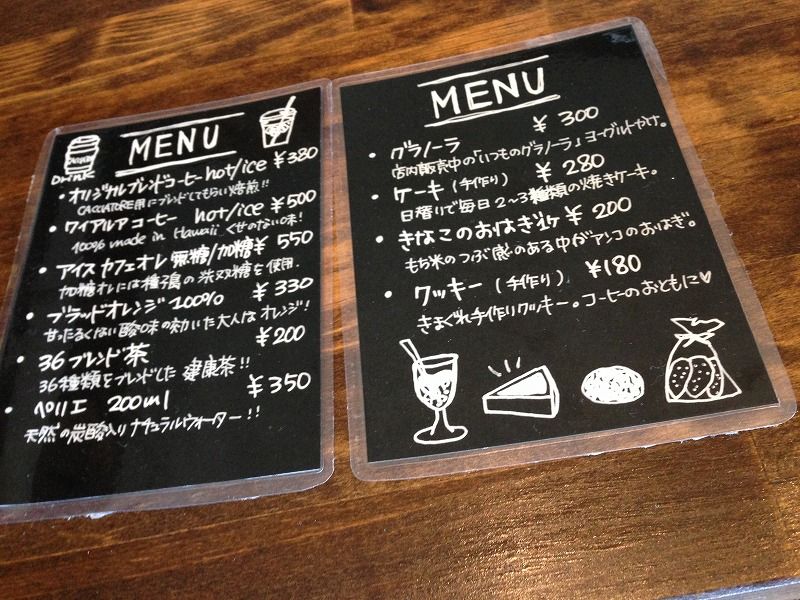 MENU
DRINK
・オリジナルブレンドコーヒー hot/ice ¥380
CACCIATORE用にブレンドしてもらい焙煎!!
・ワイアルアコーヒー hot/ice ¥500
100% made in Hawaii くせのない味!
・アイスカフェオレ 無糖/加糖 ¥550
加糖オレには種子島の洗双糖を使用.
・ブラッドオレンジ100% ¥330
甘ったるくない酸味の効いた大人なオレンジ!
・36ブレンド茶 ¥200
36種類をブレンドした健康茶!!
・ペリエ 200ml ¥350
天然の炭酸入りナチュラルウォーター!!
MENU
・グラノーラ ¥300
店内販売中の「いつものグラノーラ」ヨーグルトかけ。
・ケーキ(手作り) ¥280
日替りで毎日2~3種類の焼きケーキ。
・きなこのおはぎ1ケ ¥200
もち米のつぶ感のある中がアンコのおはぎ。
・クッキー(手作り) ¥180
きまぐれ手作りクッキー。コーヒーのおともに♡